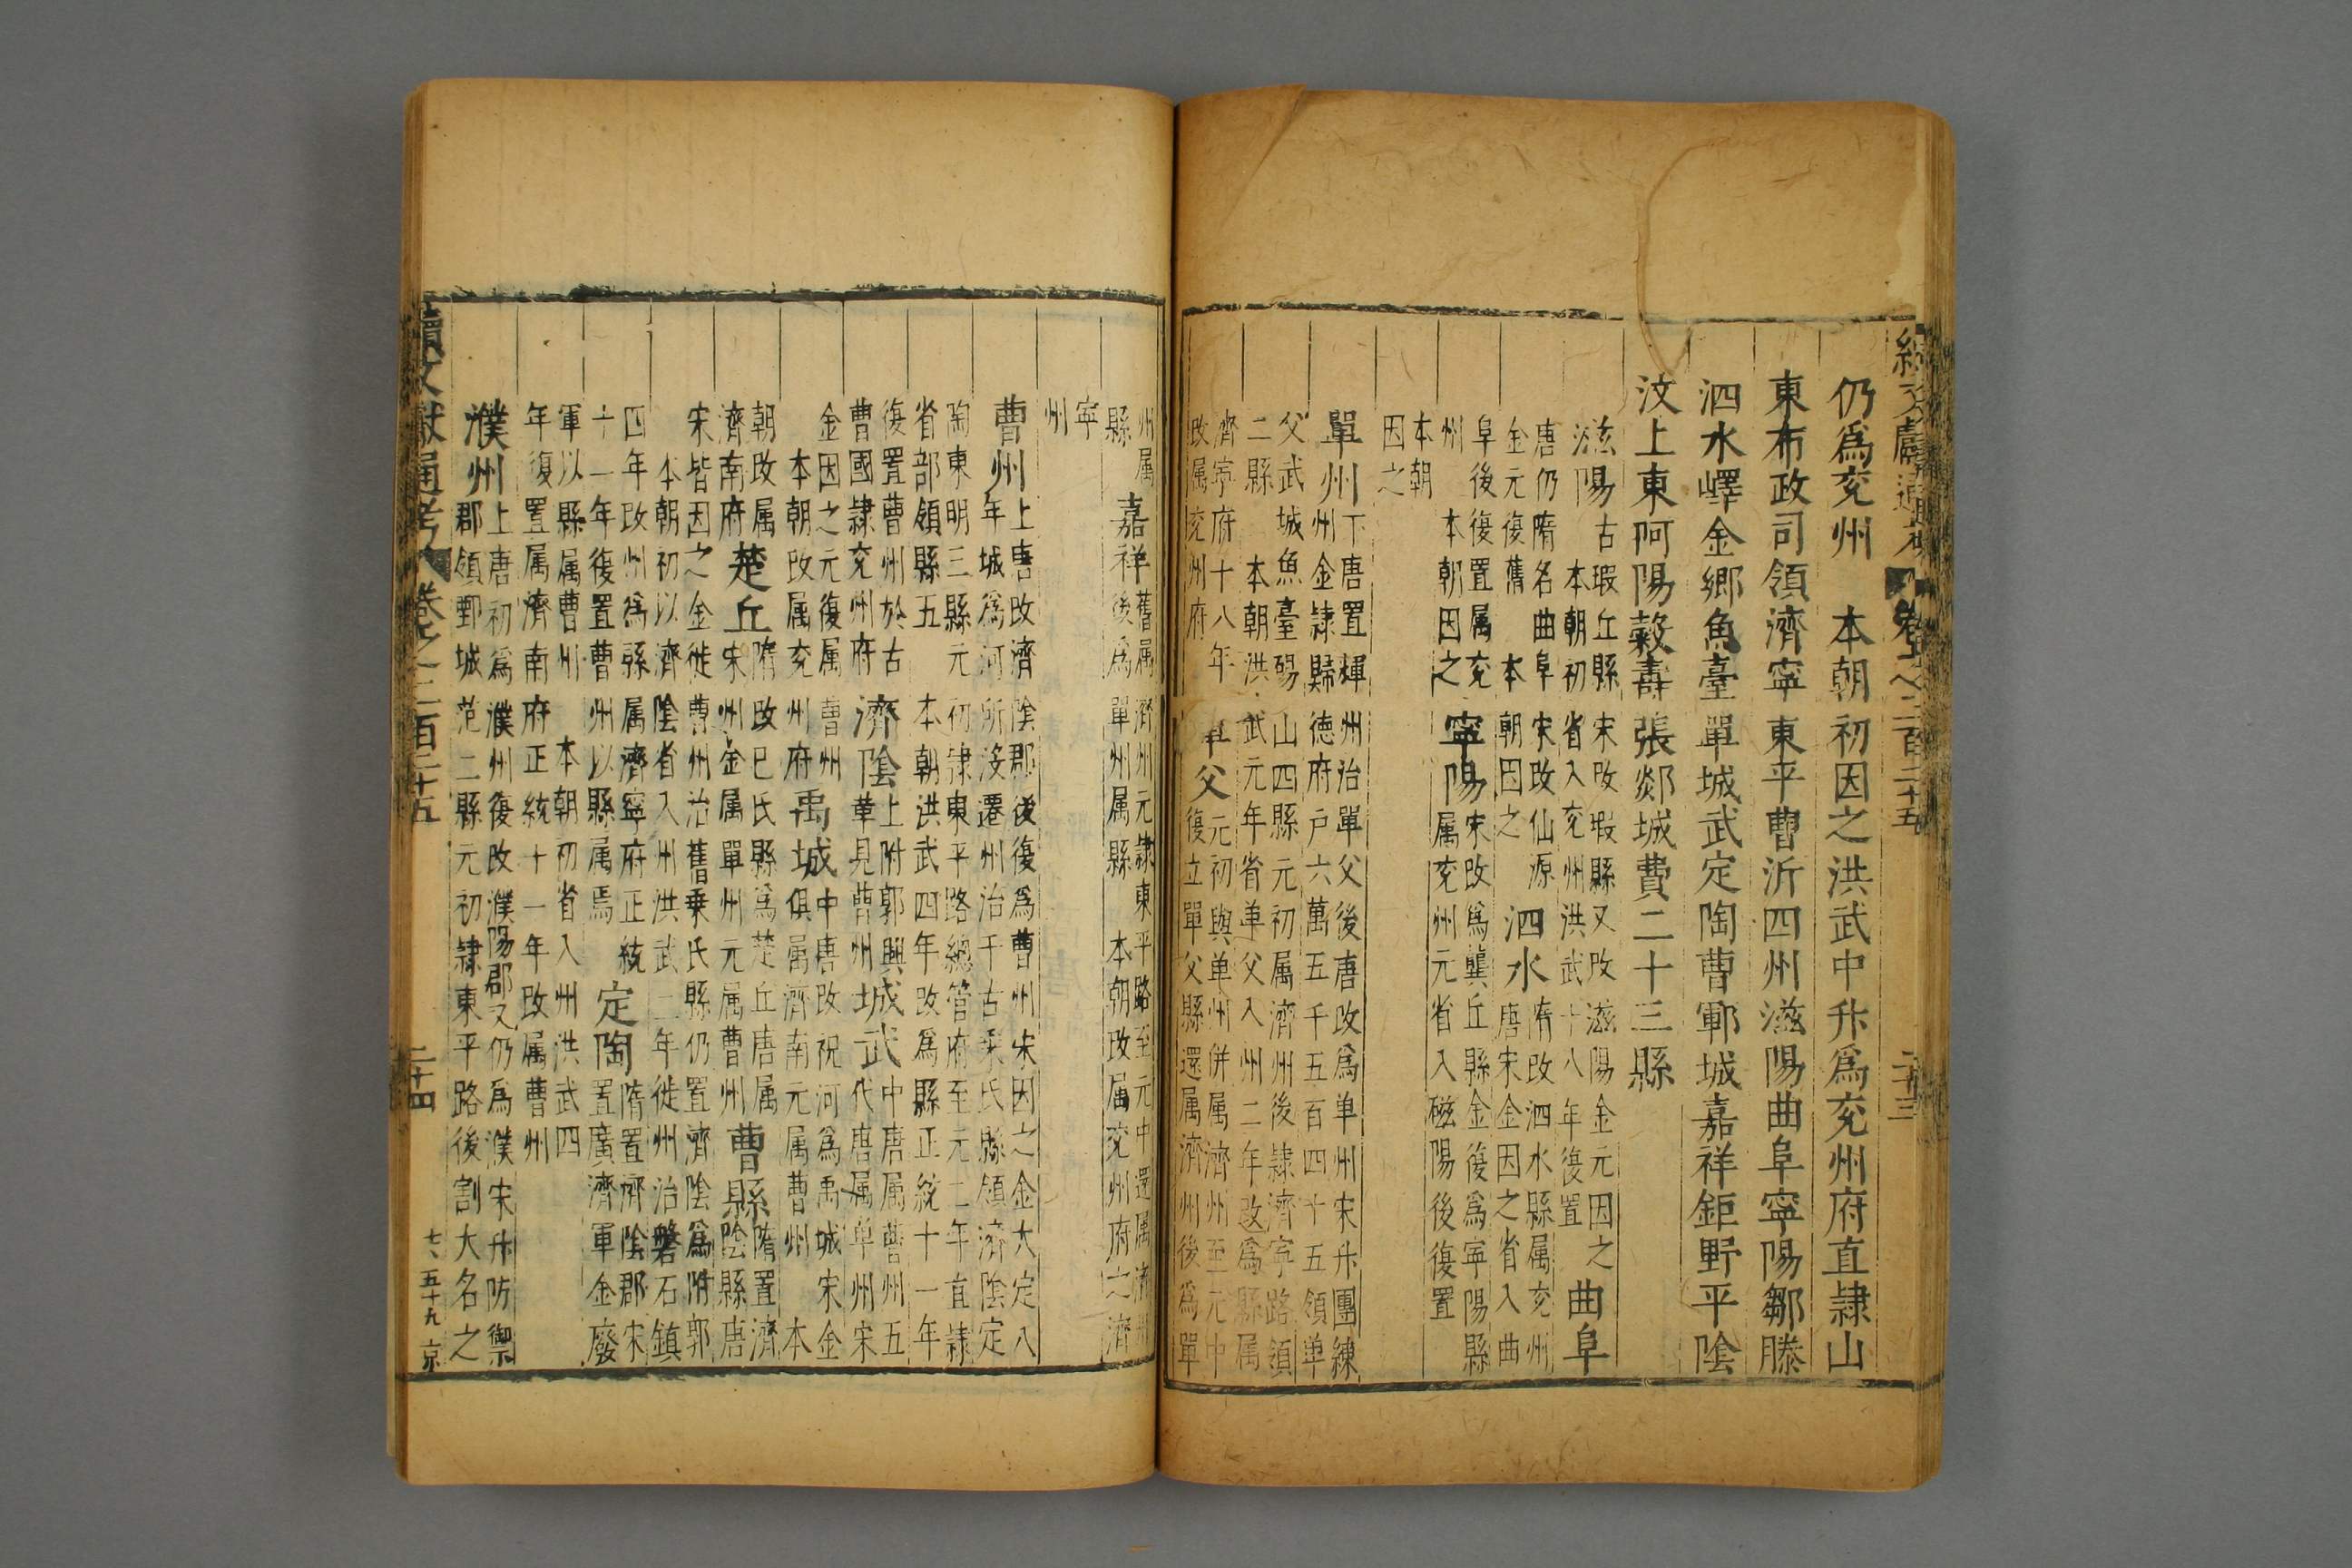 續文獻通考 卷之二百二十五 二十三
仍爲兖州 本朝初因之洪武中升爲兖州府直隸山
東布政司領濟寧東平曹沂四州滋陽曲阜寧陽鄒滕
泗水嶧金郷魚臺單城武定陶曹鄆城嘉祥鉅野平陰
汶上東阿陽穀壽張郯城費二十三縣
滋陽古瑕丘縣宋改瑕縣又改滋陽金元因之
本朝初省入兖州洪武十八年復置
曲阜
唐仍隋名曲阜宋改仙源
金元復舊 本朝因之
泗水隋改泗水縣属兖州
唐宋金因之省入曲
阜後復置属兖
州 本朝因之
寧陽宋改爲龔丘縣金復爲寧陽縣
属兖州元省入磁陽後復置
本朝
因之
單州下唐置輝州治單父後唐改爲单州宋升團練
州金隸歸德府户六萬五千五百四十五領单
父武城魚臺碭山四縣元初属濟州後隸濟寧路領
二縣 本朝洪武元年省单父入州二年改爲縣属
濟寧府十八年
改属兖州府
單父元初與单州併属濟州至元中
復立單父縣還属濟州後爲單
州属
縣
嘉祥舊属濟州元隸東平路至元中還属濟州
後爲單州属縣 本朝改属兖州府之濟
寧
州
曹州上唐改濟陰郡後復爲曹州宋因之金大定八
年城爲河所沒遷州治于古乘氏縣領濟陰定
陶東明三縣元初隸東平路總管府至元二年直隸
省部領縣五 本朝洪武四年改爲縣正統十一年
復置曹州於古
曹國隸兖州府
濟陰上附郭興
華見曹州
城武中唐属曹州五
代唐属单州宋
金因之元復属曹州
本朝改属兖州府
禹城中唐改祝河爲禹城宋金
俱属濟南元属曹州 本
朝改属
濟南府
楚丘隋改巳氏縣爲楚丘唐属
宋州金属單州元属曹州
曹縣隋置濟
陰縣唐
宋皆因之金徙曹州治舊乗氏縣仍置濟陰爲附郭
本朝初以濟陰省入州洪武二年徙州治磐石鎮
四年改州爲縣属濟寧府正統
十一年復置曹州以縣属焉
定陶隋置濟陰郡宋
置廣濟軍金廢
軍以縣属曹州 本朝初省入州洪武四
年復置属濟南府正統十一年改属曹州
濮州上唐初爲濮州復改濮陽郡又仍爲濮宋升防禦
郡領鄄城范二縣元初隸東平路後割大名之
續文獻通考 卷之二百二十五 二十四 七、五十九 京